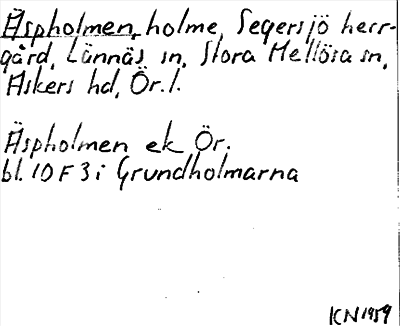 Äspholmen, holme, Segersjö herr-
gård, Lännäs sn, Stora Mellösa sn,
Askers hd, Ör. l.
Äspholmen ek Ör.
bl. 10 F 3 i Grundholmarna
KN 1959